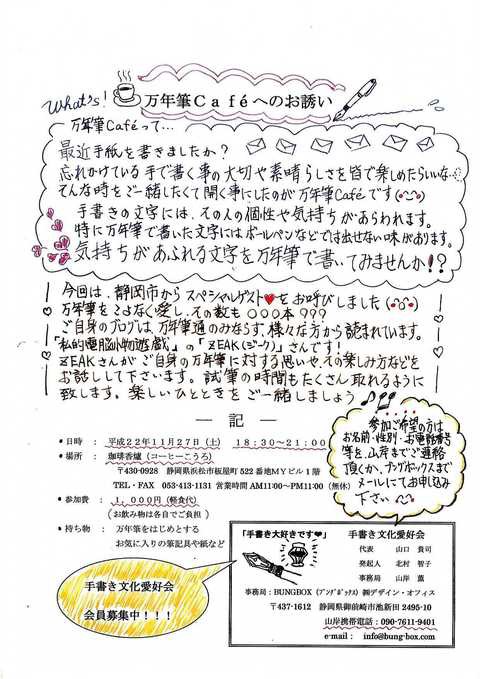 What's!
万年筆Caféへのお誘い
万年筆Caféって…
最近手紙を書きましたか?
忘れかけている手で書く事の大切や素晴らしさを皆で楽しめたらいいな…
そんな時をご一緒したくて開く事にしたのが万年筆Caféです
手書きの文字には、その人の個性や気持ちがあらわれます。
特に万年筆で書いた文字にはボールペンなどでは出せない味があります。
気持ちがあふれる文字を万年筆で書いてみませんか!?
今回は、静岡市からスペシャルゲスト♥をお呼びしました
万年筆をこよなく愛し、その数も○○○本???
ご自身のブログは、万年筆通のみならず、様々な方から読まれています。
「私的電脳小物遊戯」の「ZEAK(ジーク)」さんです!
ZEAKさんがご自身の万年筆に対する思いや、その楽しみ方などを
お話しして下さいます。試筆の時間もたくさん取れるように
致します。楽しいひとときをご一緒しましょう
― 記 ―
・日時 : 平成22年11月27日(土) 18:30~21:00
・場所 : 珈琲香爐(コーヒーこうろ)
〒430-0928 静岡県浜松市板屋町522番地MYビル1階
TEL・FAX 053-413-1131 営業時間 AM11:00~PM11:00(無休)
・参加費 : 1,000円(軽食代)
(お飲み物は各自でご負担)
・持ち物 : 万年筆をはじめとする
お気に入りの筆記具や紙など
参加ご希望の方は
お名前・性別・お電話番号
等を、山岸までご連絡
頂くか、ブングボックスまで
メールにてお申込み
下さい
手書き文化愛好会
会員募集中!!!
「手書き大好きです♥」
手書き文化愛好会
代表 山口 貴司
発起人 北村 智子
事務局 山岸 薫
事務局:BUNGBOX(ブングボックス)㈱デザイン・オフィス
〒437-1612 静岡県御前崎市池新田2495-10
山岸携帯電話:090-7611-9401
e-mail: info@bung-box.com